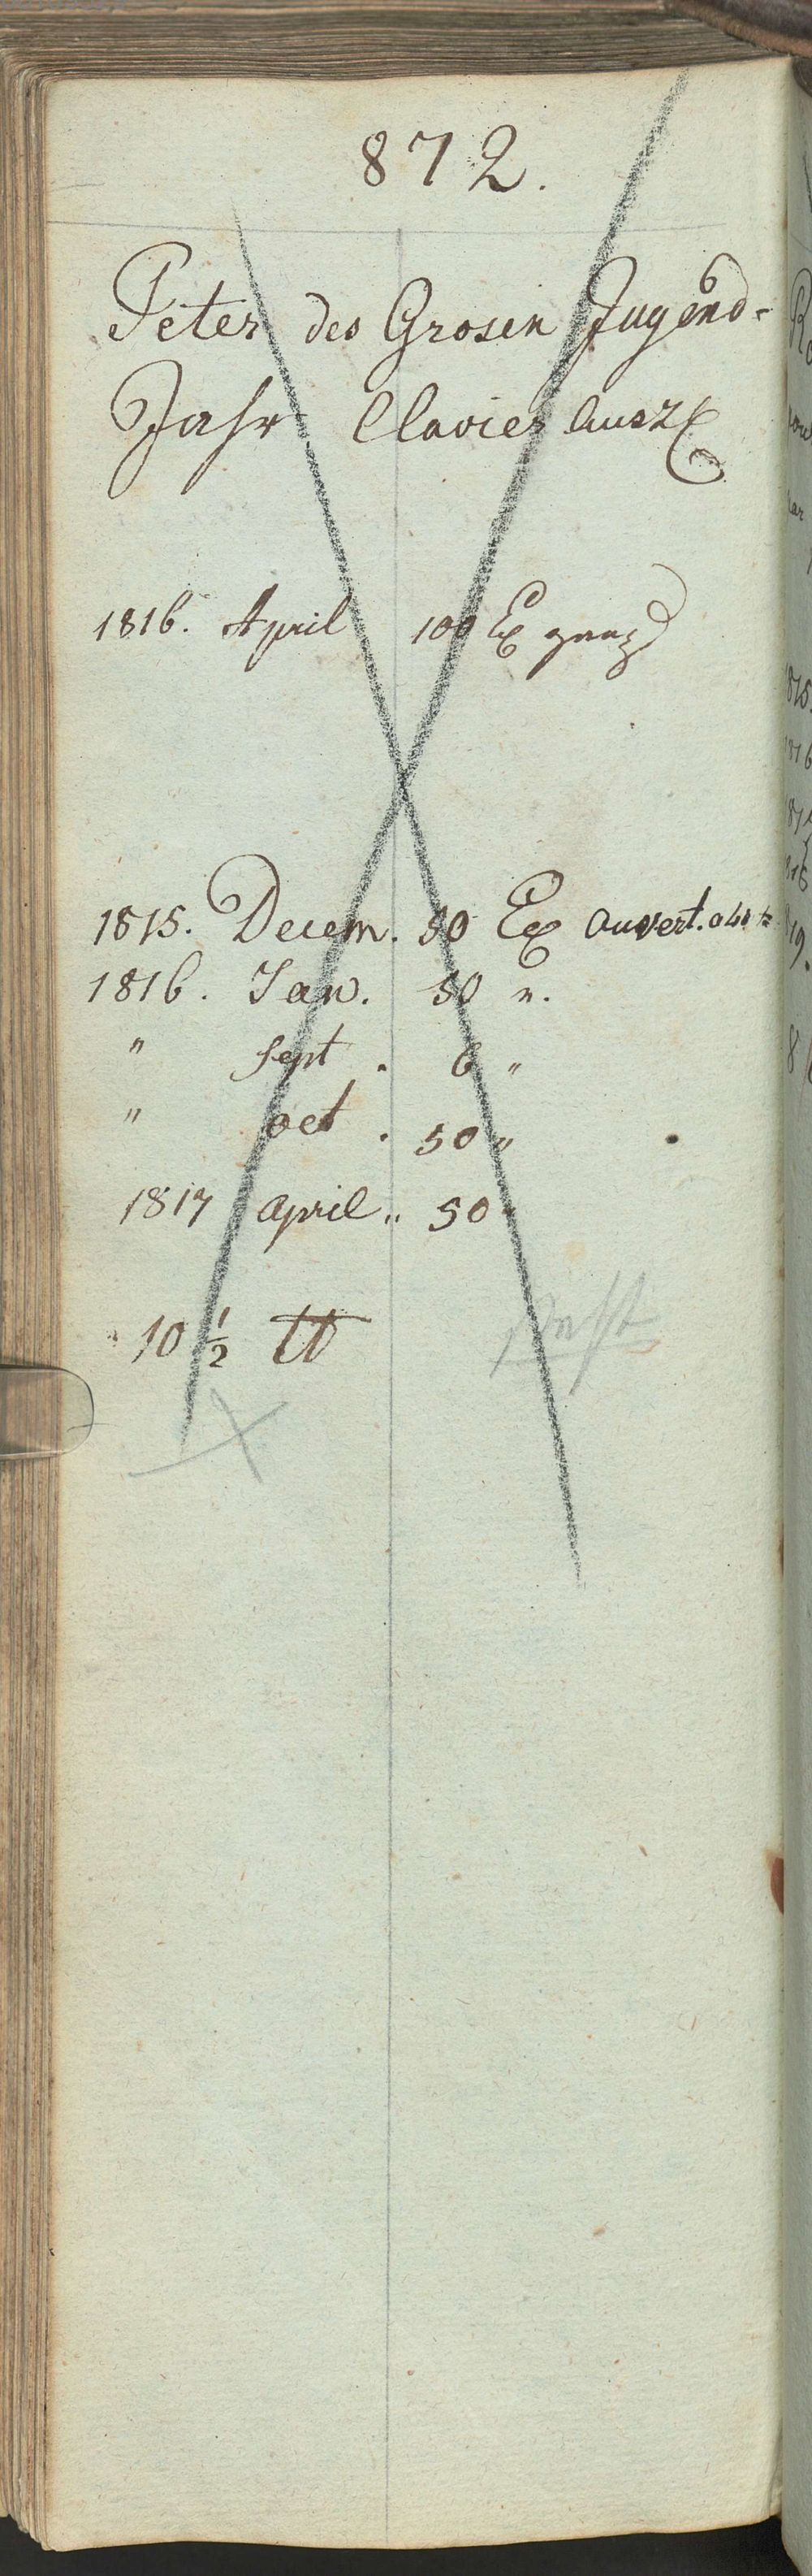 872.
Peter des Grosen Jugend-
Jahr Clavier Ausz
1816. April 100 Ex ganz
1815. Decem. 50 Ex ouvert.
1816. Jan. 50 ".
" Sept. 6 "
" oct. 50 "
1817 april " 50 "
10 1/2 ℔